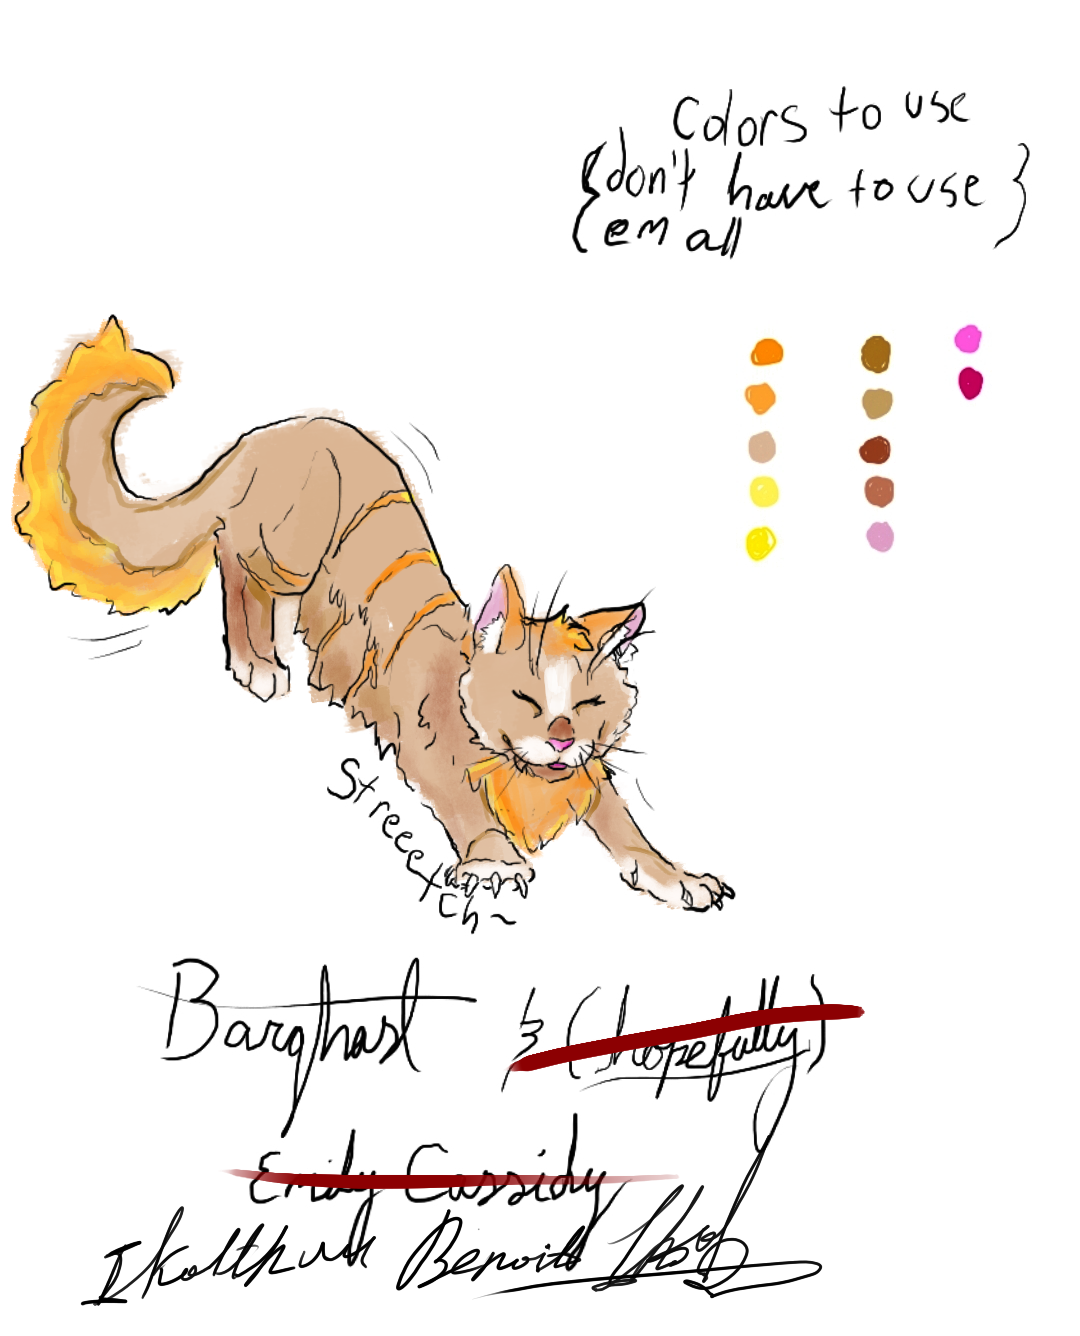 Colors to use
{don't have to use}
{em all
Streeetch~
Barghast & (hopefully)
Emily Cassidy
Benoit